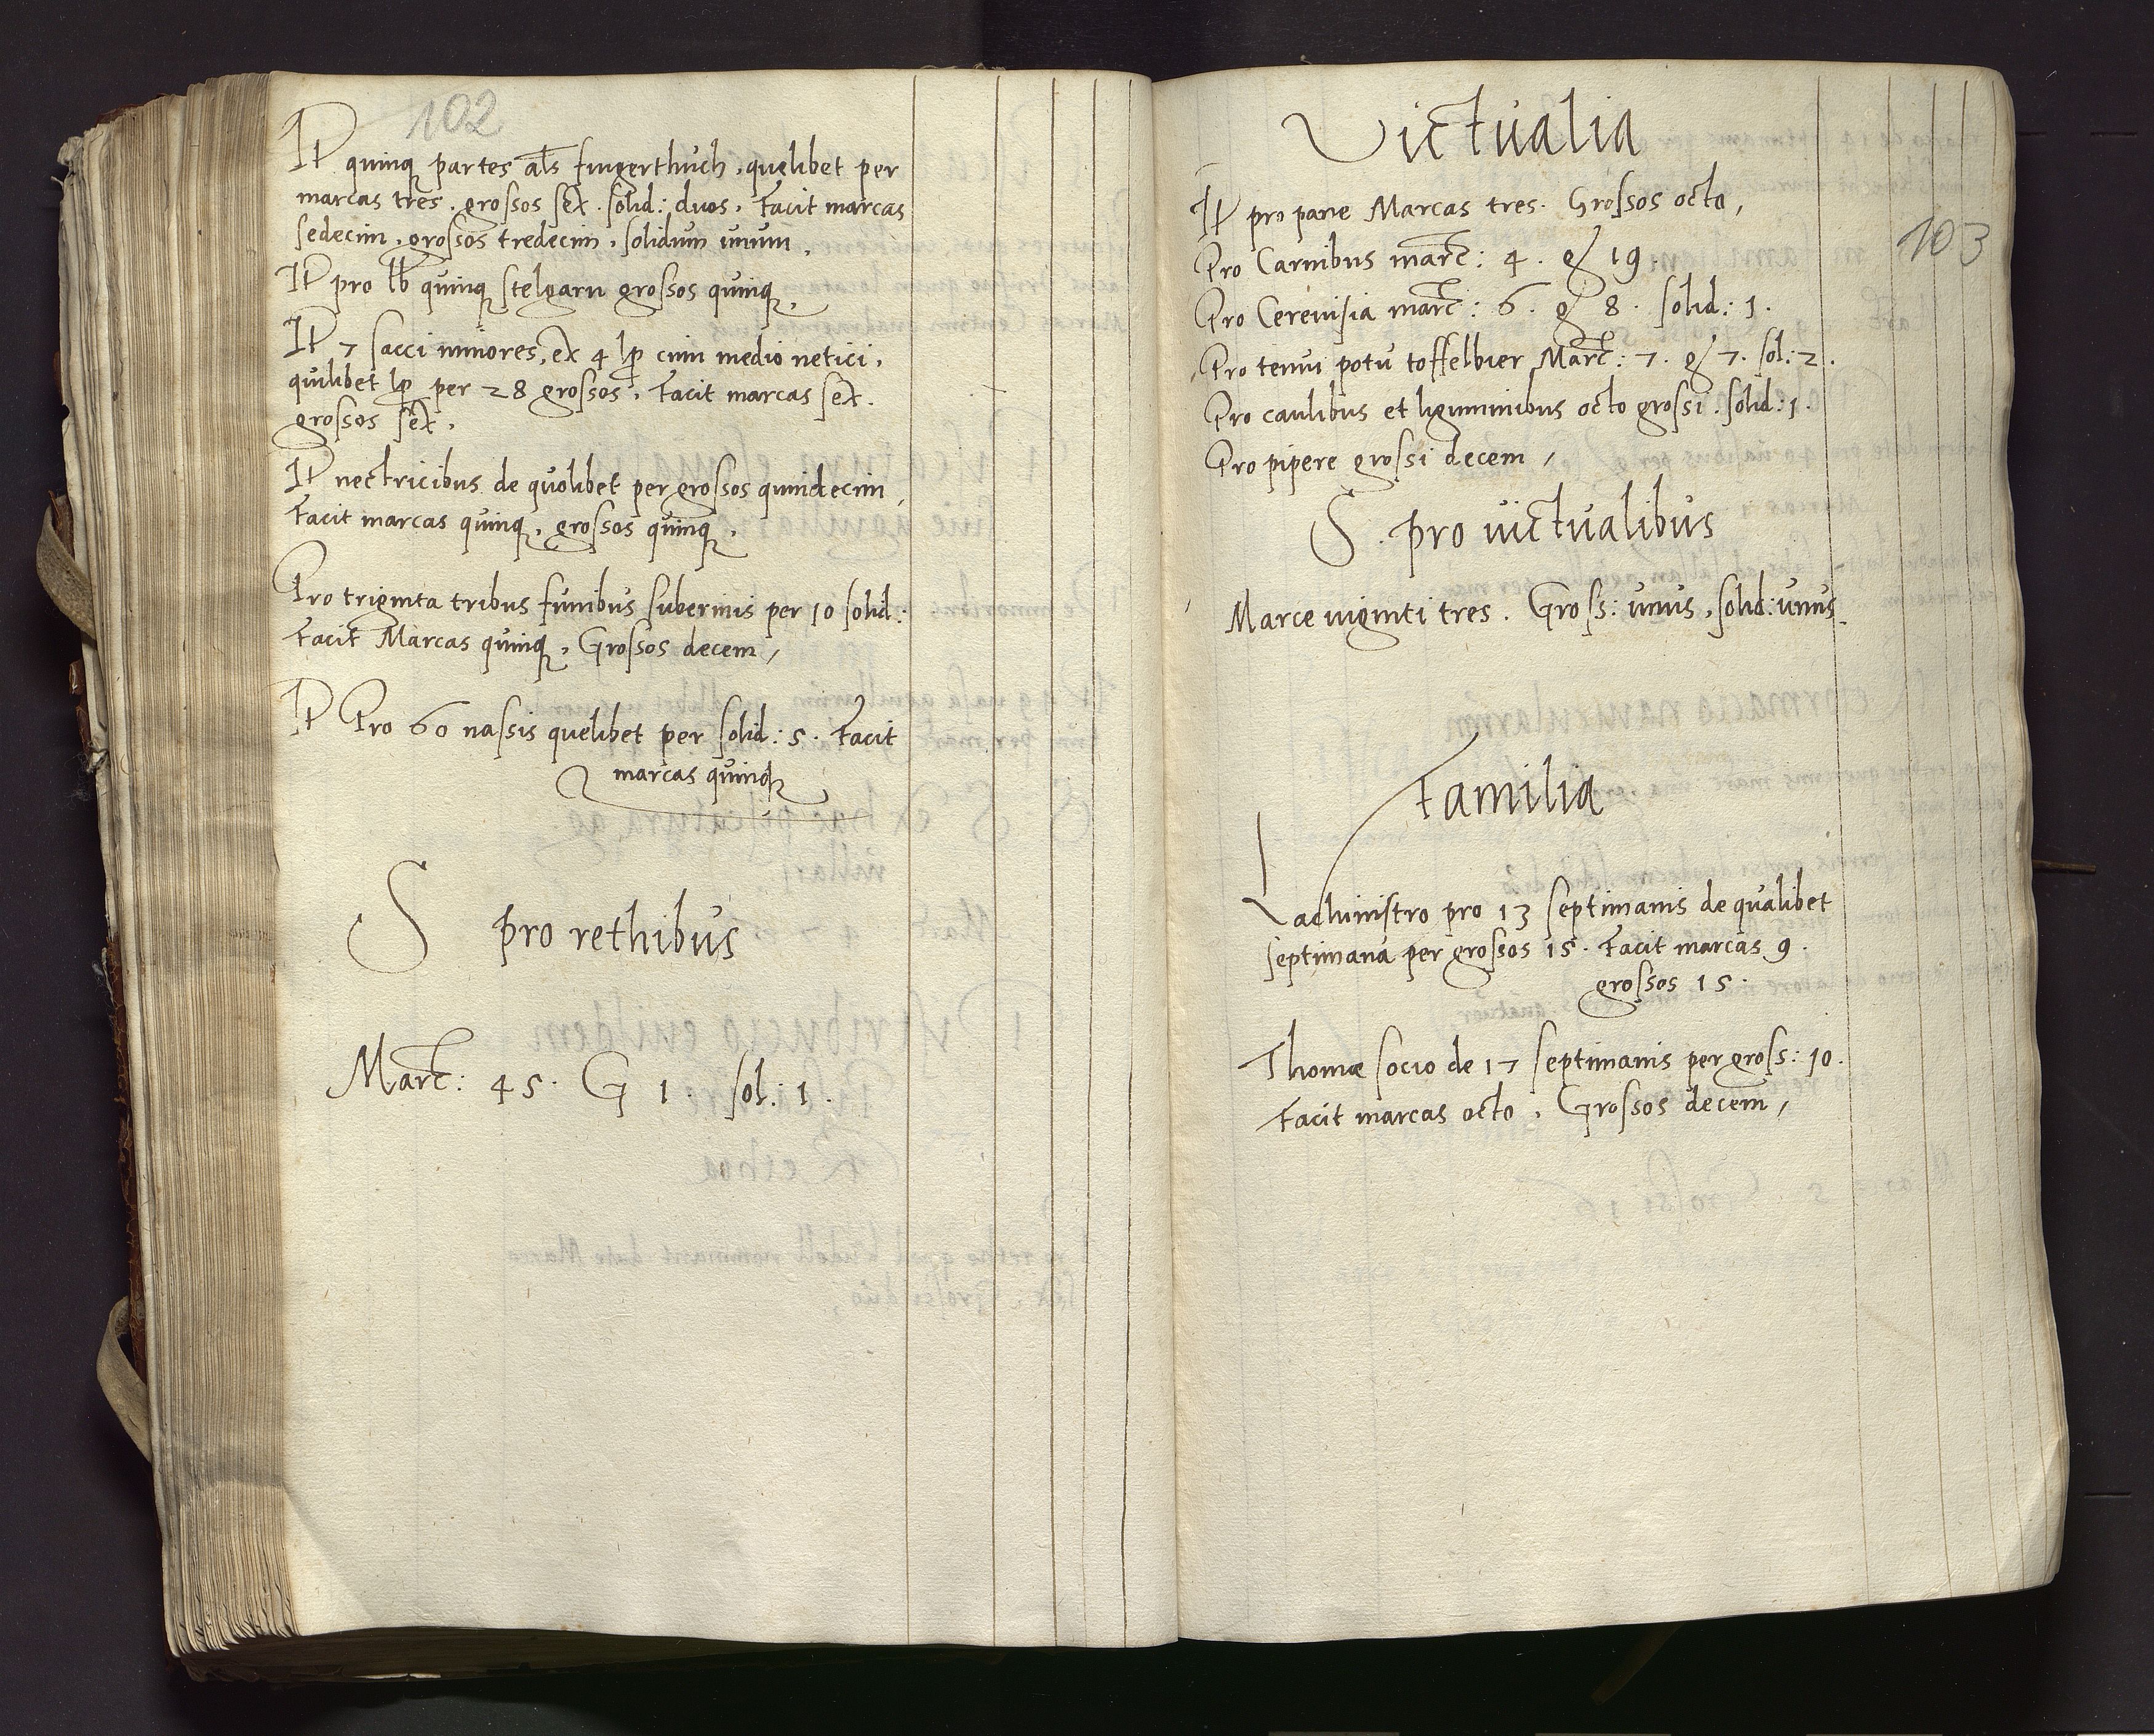 102
It quinq partes als fingerthuch, quelibet per
marcas tres. grossos sex. solid: duos, Facit marcas
sedecim, grossos tredecim, solidum unum,
It pro lb quinq stelgarn grossos quinq,
It 7 sacci minores, ex 4 lp cum medio neticj,
quilibet lp per 28 grossos, Facit marcas sex.
grossos sex,
It nectricibus de quolibet per grossos quindecim,
Facit marcas quinq, grossos quinq,
Pro triginta tribus funibus suberinis per 10 solid:
Facit Marcas quinq, Grossos decem,
It Pro 60 nassis quelibet per solid: 5. Facit
marcas quinq
S pro rethibus
Marc: 45. G 1. sol: 1.
Victualia
103
It pro pane Marcas tres. Grossos octo,
Pro Carnibus marc: 4. g 19.
Pro Cerevisia marc: 6. g 8. solid: 1.
Pro tenui potu toffelbier Marc: 7. g 7. sol: 2.
Pro caulibus et liguminibus octo grossi. solid: 1.
Pro pipere grossi decem,
S. pro victualibus
Marce viginti tres. Gross: unus, solid: unus.
Familia
Lachinistro pro 13 septimanis de qualibet
septimana per grossos 15. Facit marcas 9.
grossos 15.
Thomæ socio de 17 septimanis per gross: 10.
Facit marcas octo, Grossos decem,